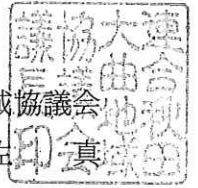 協議会
真
連合秋田
大曲地域
協議会
議長印